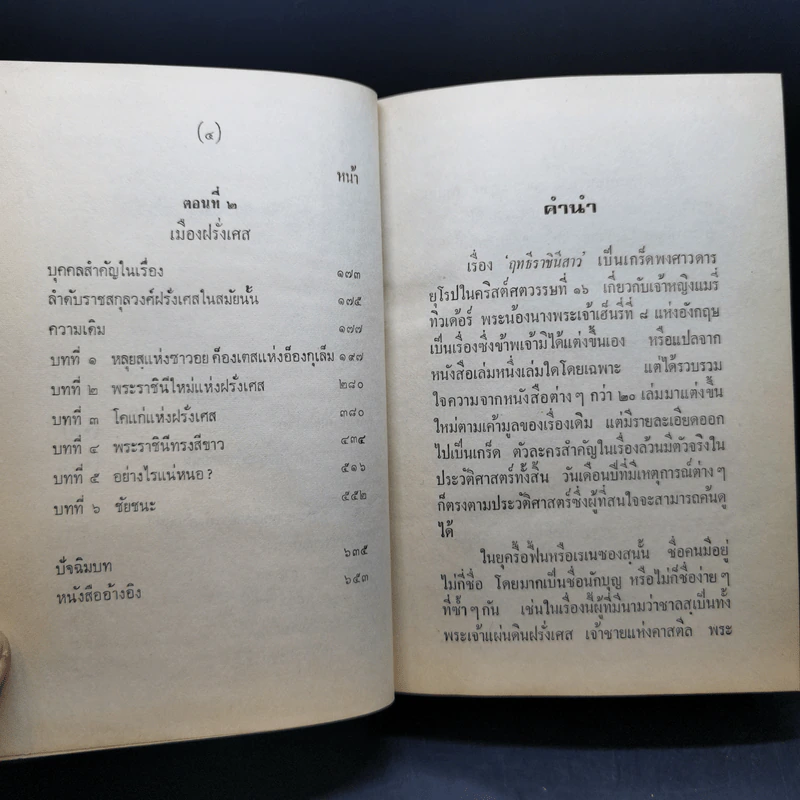 (๔)
หน้า
ตอนที่ ๒
เมืองฝรั่งเศส
บุคคลสำคัญในเรื่อง ๑๗๓
ลำดับราชสกุลวงศ์ฝรั่งเศสในสมัยนั้น ๑๗๕
ความเดิม ๑๗๗
บทที่ ๑ หลุยส์แห่งซาวอย ค็องเตสแห่งอ็องกูเล็ม ๑๙๗
บทที่ ๒ พระราชินีใหม่แห่งฝรั่งเศส ๒๘๐
บทที่ ๓ โคแก่แห่งฝรั่งเศส ๓๘๐
บทที่ ๔ พระราชินีทรงสีขาว ๔๓๔
บทที่ ๕ อย่างไรแน่หนอ? ๕๑๖
บทที่ ๖ ชัยชนะ ๕๕๒
ปัจฉิมบท ๖๓๕
หนังสืออ้างอิง ๖๕๓
คำนำ
เรื่อง 'ฤทธีราชินีสาว' เป็นเกร็ดพงศาวดาร
ยุโรปในคริสต์ศตวรรษที่ ๑๖ เกี่ยวกับเจ้าหญิงแมรี่
ทิวเด้อร์ พระน้องนางพระเจ้าเฮ็นรี่ที่ ๘ แห่งอังกฤษ
เป็นเรื่องซึ่งข้าพเจ้ามิได้แต่งขึ้นเอง หรือแปลจาก
หนังสือเล่มหนึ่งเล่มใดโดยเฉพาะ แต่ได้รวบรวม
ใจความจากหนังสือต่างๆ กว่า ๒๐ เล่มมาแต่งขึ้น
ใหม่ตามเค้ามูลของเรื่องเดิม แต่มีรายละเอียดออก
ไปเป็นเกร็ด ตัวละครสำคัญในเรื่องล้วนมีตัวจริงใน
ประวัติศาสตร์ทั้งสิ้น วันเดือนปีที่มีเหตุการณ์ต่างๆ
ก็ตรงตามประวัติศาสตร์ซึ่งผู้ที่สนใจจะสามารถค้นดู
ได้
ในยุครื้อฟื้นหรือเรเนซองสนั้น ชื่อคนมีอยู่
ไม่กี่ชื่อ โดยมากเป็นชื่อนักบุญ หรือไม่ก็ชื่อง่ายๆ
ที่ซ้ำๆ กัน เช่นในเรื่องนี้ผู้ที่มีนามว่าชาลสเป็นทั้ง
พระเจ้าแผ่นดินฝรั่งเศส เจ้าชายแห่งคาสตีล พระ